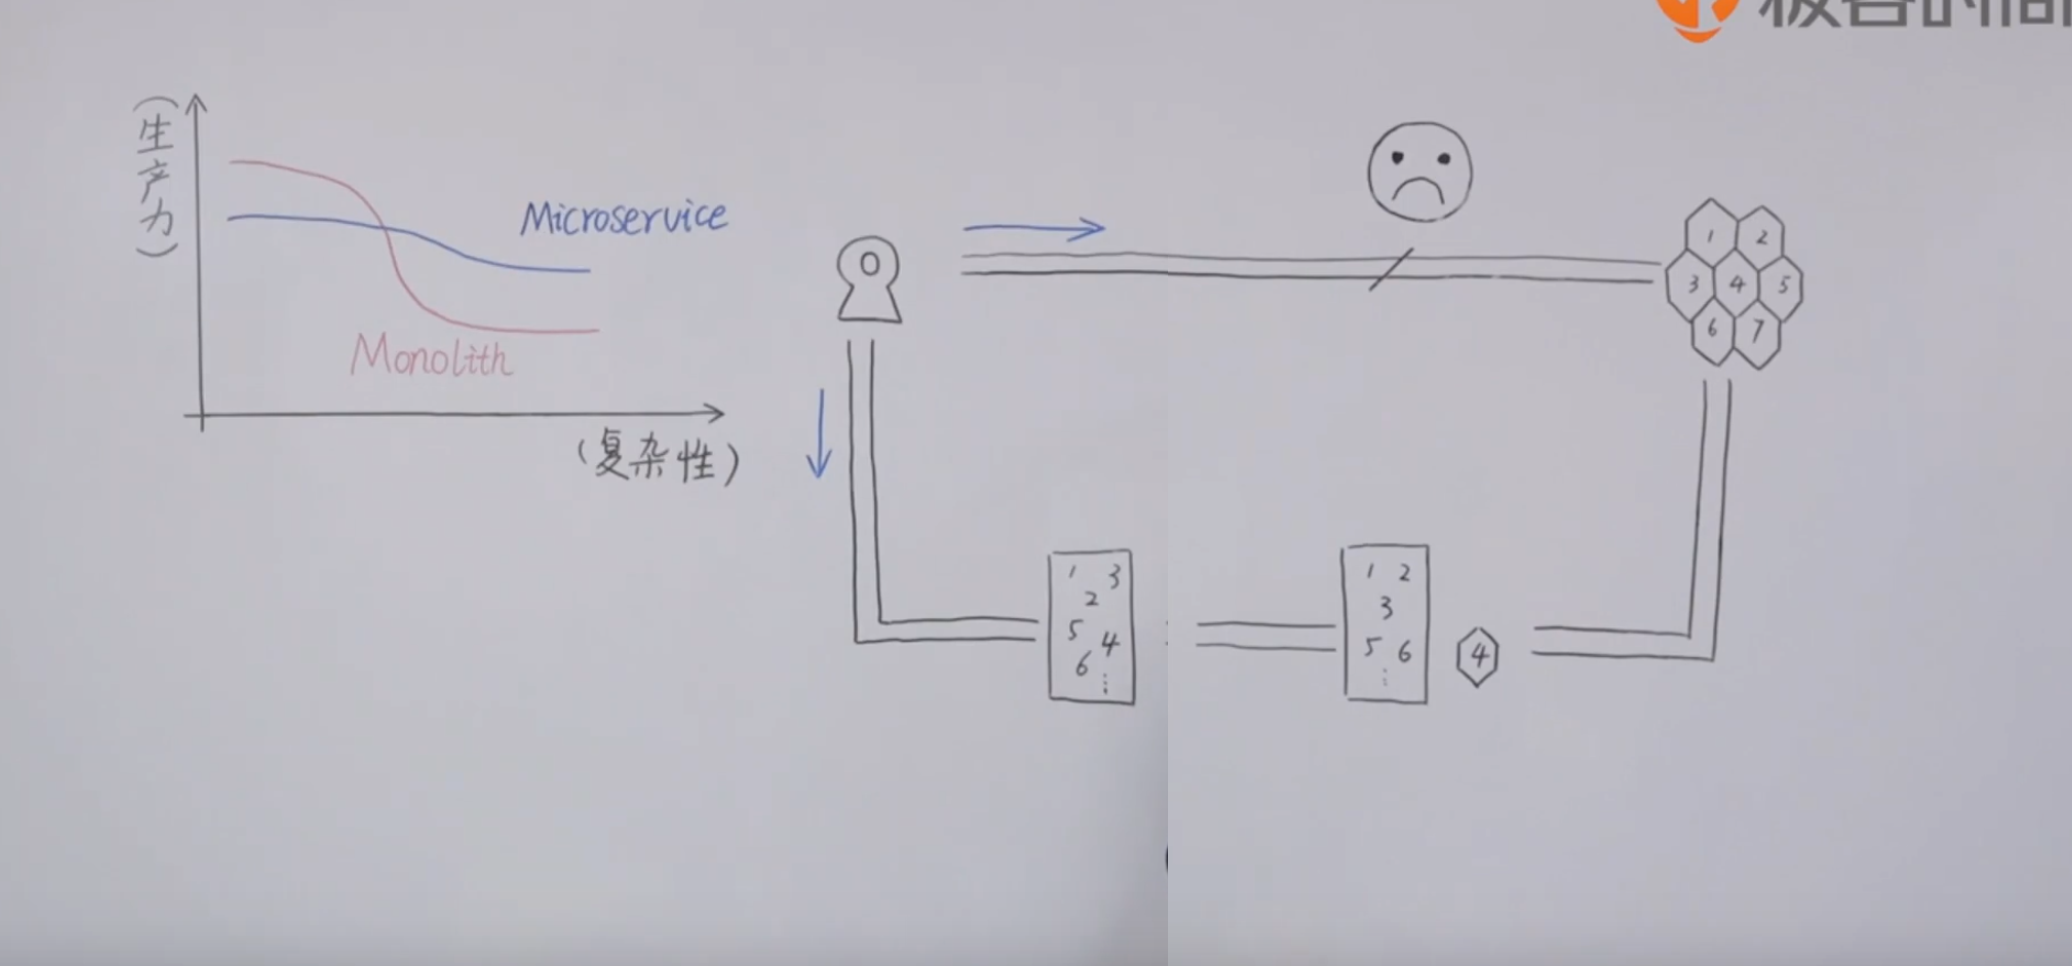 极客时间
(生产力)
Microservice
Monolith
(复杂性)
0
1 2
3 4 5
6 7
1 3
2
5 4
6
⋮
1 2
3
5 6
⋮
4